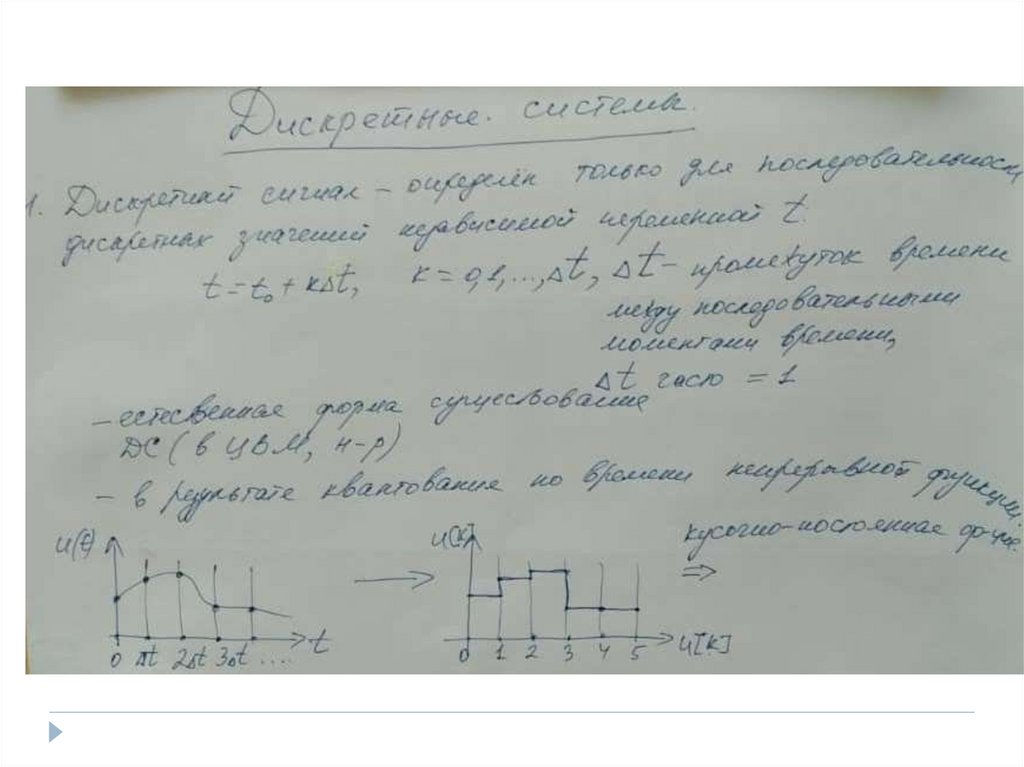 Дискретные системы.
1. Дискретный сигнал – определён только для последовательности
дискретных значений независимой переменной t.
t = t₀ + kΔt, k = 0,1,...,Δt, Δt – промежуток времени
между последовательными
моментами времени,
Δt часто = 1
– естественная форма существование
ДС (в ЦВМ, н-р)
– в результате квантование по времени непрерывной функции.
кусочно-постоянная ф-ция.
u(t) → u[k] ⇒
0 Δt 2Δt 3Δt .... t
0 1 2 3 4 5 u[k]